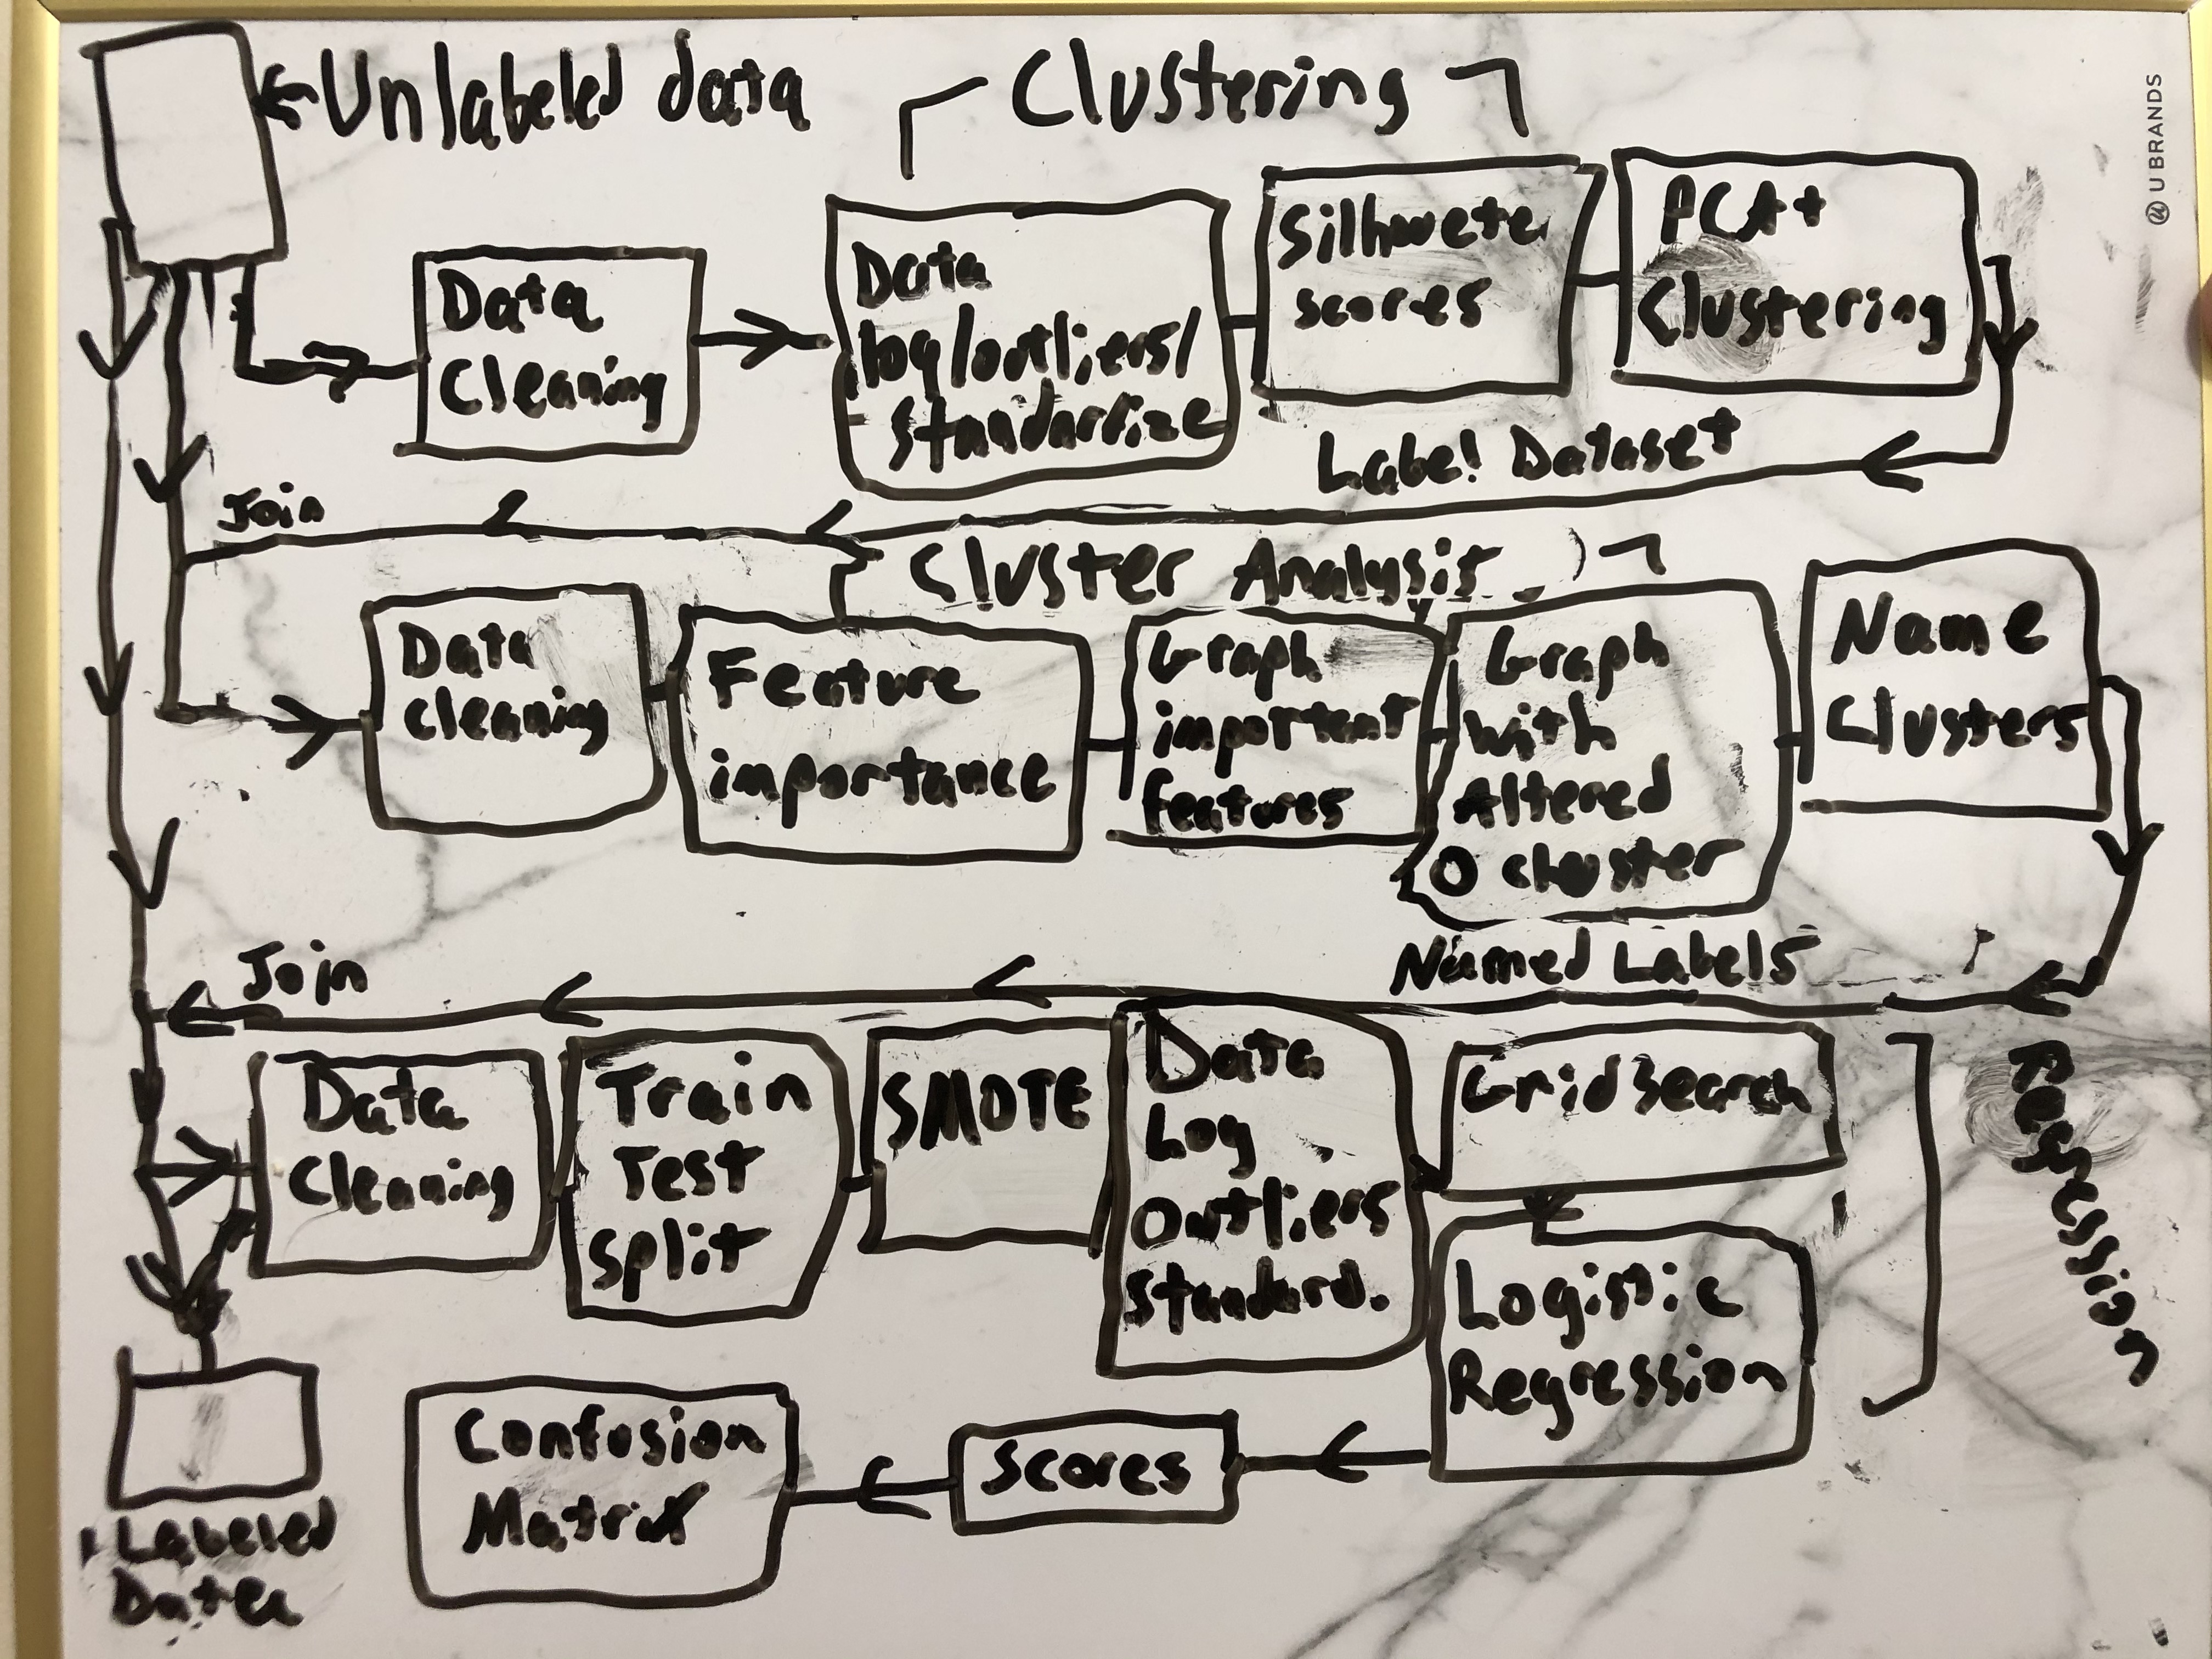 Unlabeled data
Clustering
U BRANDS
Data
Cleaning
Data
log/outliers/
Standardize
Silhouete
scores
PCA+
Clustering
Label Dataset
Join
Cluster Analysis
Data
cleaning
Feature
importance
Graph
important
features
Graph
with
Altered
0 cluster
Name
Clusters
Named Labels
Join
Data
Cleaning
Train
Test
Split
SMOTE
Data
Log
Outliers
Standard.
Grid Search
Logistic
Regression
Regression
Scores
Confusion
Matrix
Labeled
Data